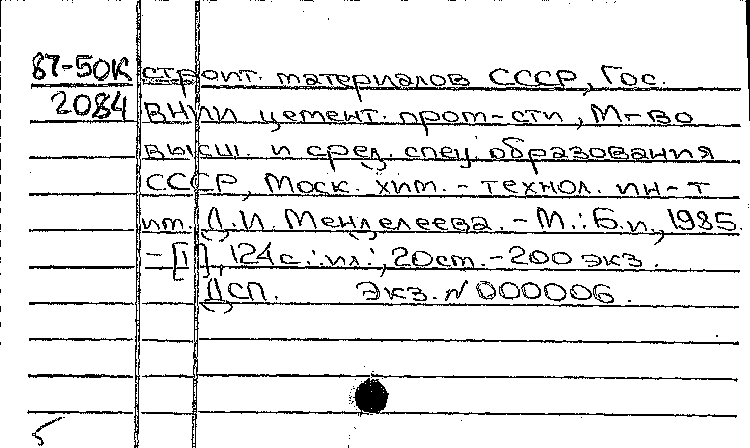 87-50К строит. материалов СССР, Гос.
2084 ВНИИ цемент. пром-сти, М-во
высш. и сред. спец. образования
СССР, Моск. хим. - технол. ин-т
им. Д.И. Менделеева. - М.: Б.и., 1985.
- [1], 124 с.: ил.; 20 см. - 200 экз.
ДСП. Экз. № 000006.